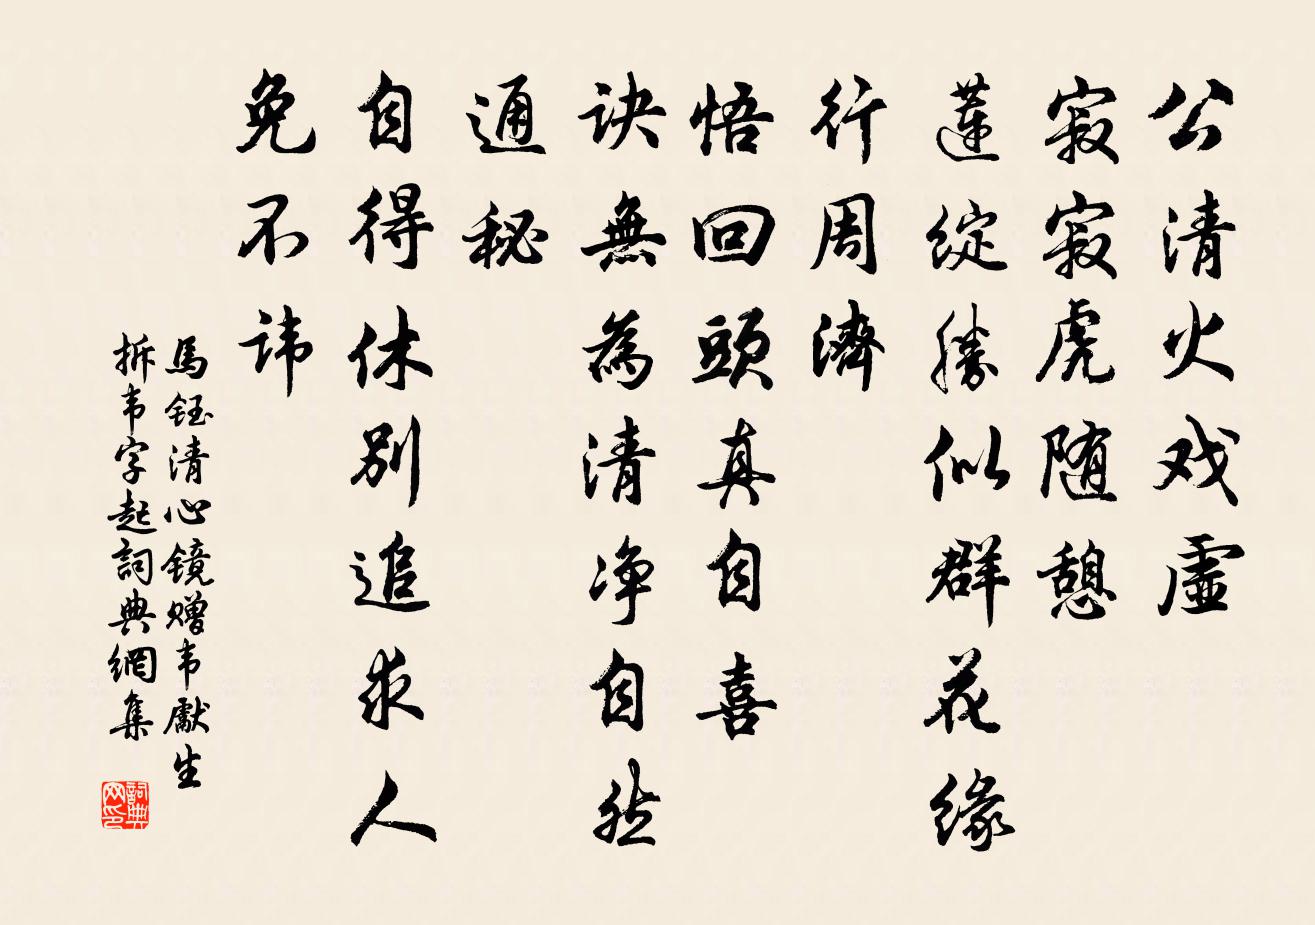 公清火戏虚
寂寂虎随憩
莲绽胜似群花缘
行周济
悟回頭真自喜
诀無為清净自然
通秘
自得休别追求人
免不讳
馬钰清心镜赠韦獻生
拆韦字起詞典網集
詞典网印